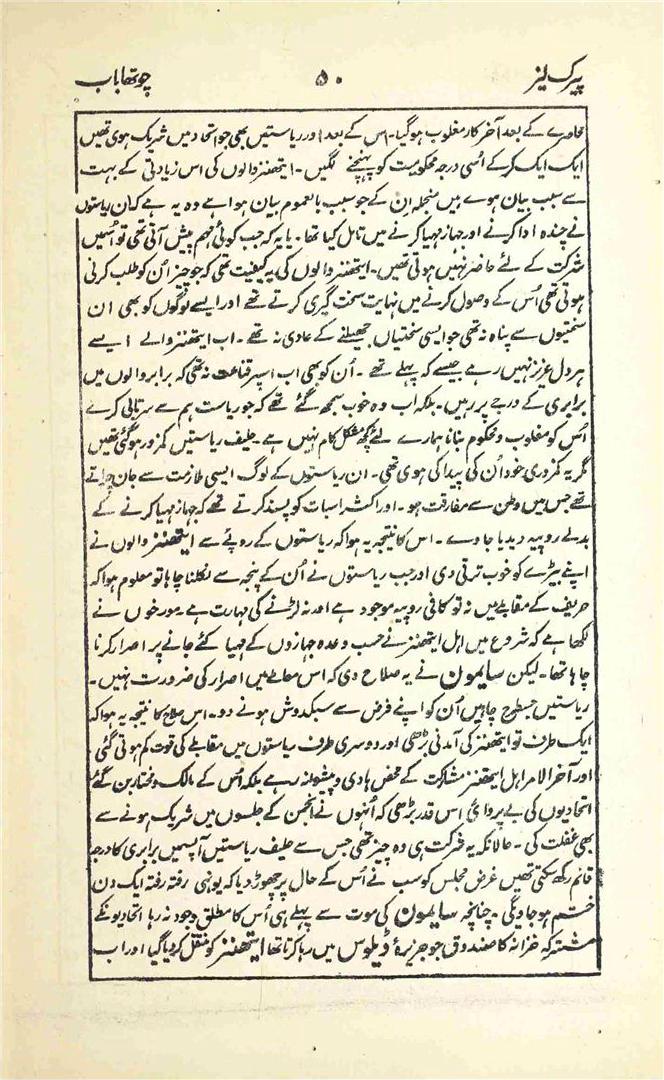 پیرک لیز ۵۰ چوتھا باب
محاصرے کے بعد آخر کار مغلوب ہوگیا۔ اس کے بعد اور ریاستیں بھی جو اتحاد میں شریک ہوی تھیں
ایک ایک کرکے اُسی درجہ محکومیت کو پہنچنے لگیں۔ ایتھنز والوں کی اس زیادتی کے بہت
سے سبب بیان ہوے ہیں منجملہ ان کے جو سبب بالعموم بیان ہوا ہے وہ یہ ہے کہ ان ریاستوں
نے چندہ ادا کرنے اور جہاز مہیا کرنے میں تامل کیا تھا۔ یا یہ کہ جب کوئی مہم پیش آتی تھی تو اُسمیں
شرکت کے لئے حاضر نہیں ہوتی تھیں۔ ایتھنز والوں کی یہ کیفیت تھی کہ جو چیز اُن کو طلب کرنی
ہوتی تھی اُس کے وصول کرنے میں نہایت سخت گیری کرتے تھے اور ایسے لوگوں کو بھی ان
سختیوں سے پناہ نہ تھی جو ایسی سختیاں جھیلنے کے عادی نہ تھے۔ اب ایتھنز والے ایسے
ہر دل عزیز نہیں رہے جیسے کہ پہلے تھے۔ اُن کو بھی اب اسپر قناعت نہ تھی کہ برابر والوں میں
برابری کے درجے پر رہیں۔ بلکہ اب وہ خوب سمجھ گئے تھے کہ جو ریاست ہم سے سرتابی کرے
اُس کو مغلوب و محکوم بنانا ہمارے لئے کچھ مشکل کام نہیں ہے۔ حلیف ریاستیں کمزور ہوگئی تھیں
مگر یہ کمزوری خود اُن کی پیدا کی ہوی تھی۔ ان ریاستوں کے لوگ ایسی ملازمت سے جان چراتے
تھے جس میں وطن سے مفارقت ہو۔ اور اکثر اسبات کو پسند کرتے تھے کہ جہاز مہیا کرنے کے
بدلے روپیہ دیدیا جاوے۔ اس کا نتیجہ یہ ہوا کہ ریاستوں کے روپئے سے ایتھنز والوں نے
اپنے بیڑے کو خوب ترقی دی اور جب ریاستوں نے اُن کے پنجہ سے نکلنا چاہا تو معلوم ہوا کہ
حریف کے مقابلے میں نہ تو کافی روپیہ موجود ہے اور نہ لڑنے کی مہارت ہے۔ مورخوں نے
لکھا ہے کہ شروع میں اہل ایتھنز نے حسب وعدہ جہازوں کے مہیا کئے جانے پر اصرار کرنا
چاہا تھا۔ لیکن سایمون نے یہ صلاح دی کہ اس معاملے میں اصرار کی ضرورت نہیں۔
ریاستیں جسطرح چاہیں اُن کو اپنے فرض سے سبکدوش ہونے دو۔ اس صلاح کا نتیجہ یہ ہوا کہ
ایک طرف تو ایتھنز کی آمدنی بڑھی اور دوسری طرف ریاستوں میں مقابلے کی قوت کم ہوتی گئی
اور آخر الامر اہل ایتھنز مشارکت کے محض ہادی و پیشوا نہ رہے بلکہ اُس کے مالک و مختار بن گئے
اتحادیوں کی بے پروائی اس قدر بڑھی کہ اُنہوں نے انجمن کے جلسوں میں شریک ہونے سے
بھی غفلت کی۔ حالانکہ یہ شرکت ہی وہ چیز تھی جس سے حلیف ریاستیں آپسمیں برابری کا درجہ
قائم رکھ سکتی تھیں غرض مجلس کو سب نے اس کے حال پر چھوڑ دیا کہ یونہی رفتہ رفتہ ایک دن
ختم ہو جاویگی۔ چنانچہ سایمون کی موت سے پہلے ہی اُس کا مطلق وجود نہ رہا اتحادیونکے
مشترکہ خزانہ کا صندوق جو جزیرۂ ڈیلوس میں رہا کرتا تھا ایتھنز کو منتقل کر دیا گیا اور اب